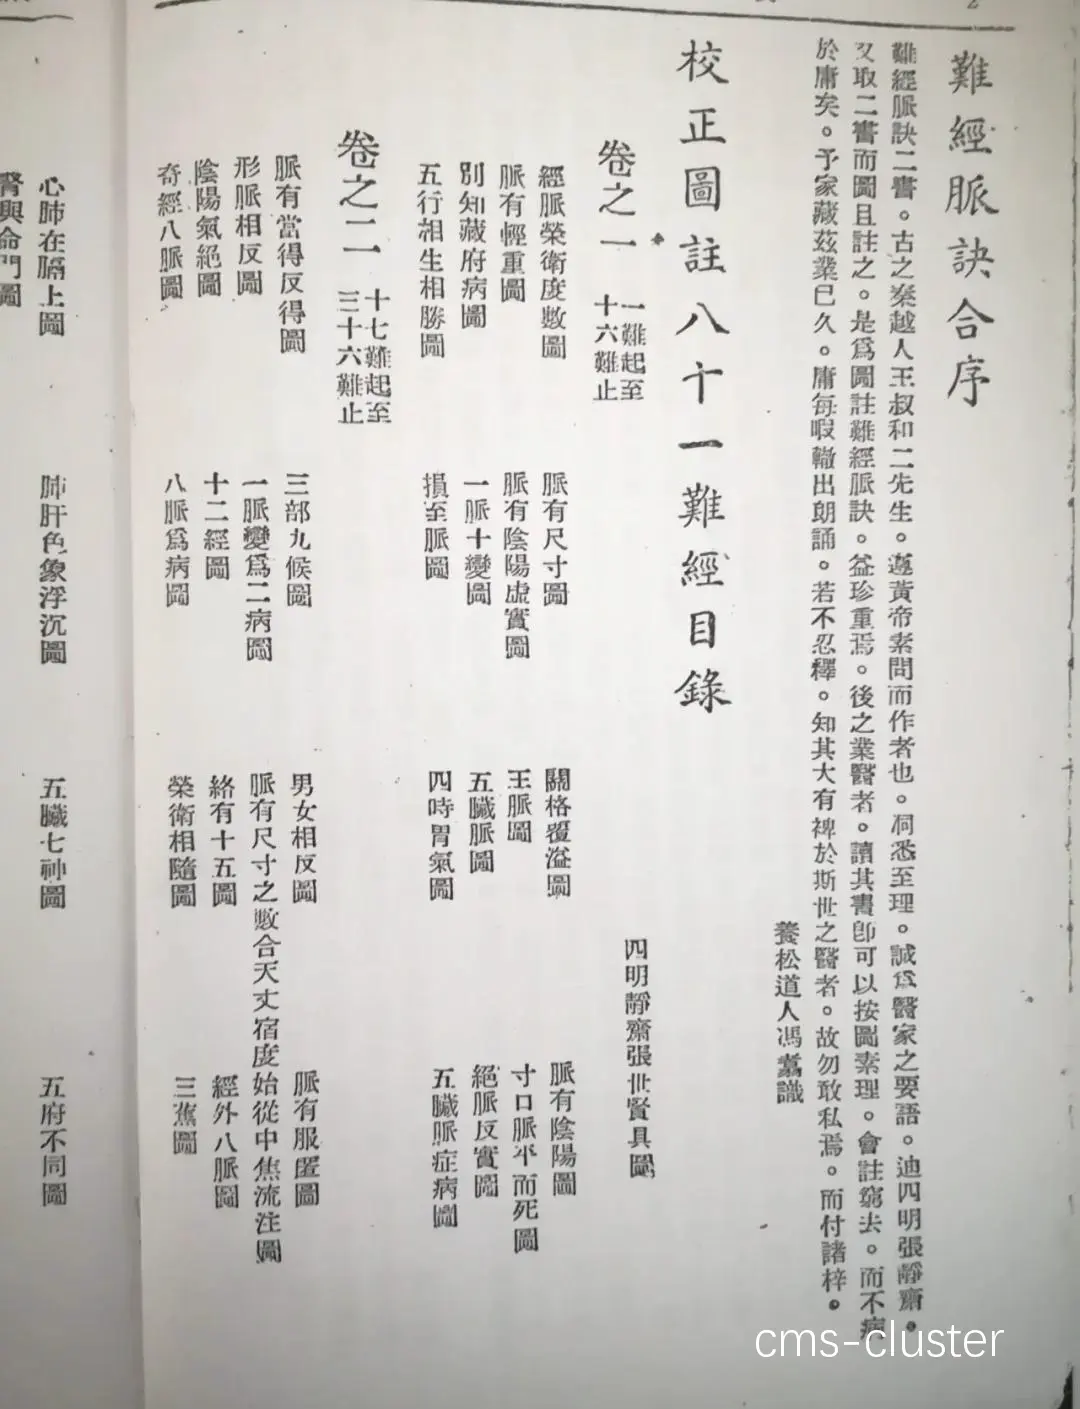 難經脈訣合序
難經脈訣二書。古之秦越人王叔和二先生。遵黃帝素問而作者也。洞悉至理。誠爲醫家之要語。迪四明張靜齋。
又取二書而圖且註之。是爲圖註難經脈訣。益珍重焉。後之業醫者。讀其書卽可以按圖索理。會註窮去。而不病
於庸矣。予家藏茲業已久。庸每暇輙出朗誦。若不忍釋。知其大有裨於斯世之醫者。故勿敢私焉。而付諸梓。
養松道人馮嵩識
校正圖註八十一難經目錄
四明靜齋張世賢具圖
卷之一 一難起至十六難止
經脈榮衛度數圖 脈有尺寸圖 關格覆溢圖 脈有陰陽圖
脈有輕重圖 脈有陰陽虛實圖 王脈圖 寸口脈平而死圖
別知藏府病圖 一脈十變圖 五臟脈圖 絕脈反實圖
五行相生相勝圖 損至脈圖 四時胃氣圖 五臟脈症病圖
卷之二 十七難起至三十六難止
脈有當得反得圖 三部九候圖 男女相反圖 脈有服匿圖
形脈相反圖 一脈變爲二病圖 脈有尺寸之數合天丈宿度始從中焦流注圖
陰陽氣絕圖 十二經圖 絡有十五圖 經外八脈圖
奇經八脈圖 八脈爲病圖 榮衛相隨圖 三蕉圖
心肺在膈上圖 肺肝色象浮沉圖 五臟七神圖 五府不同圖
腎與命門圖
cms-cluster